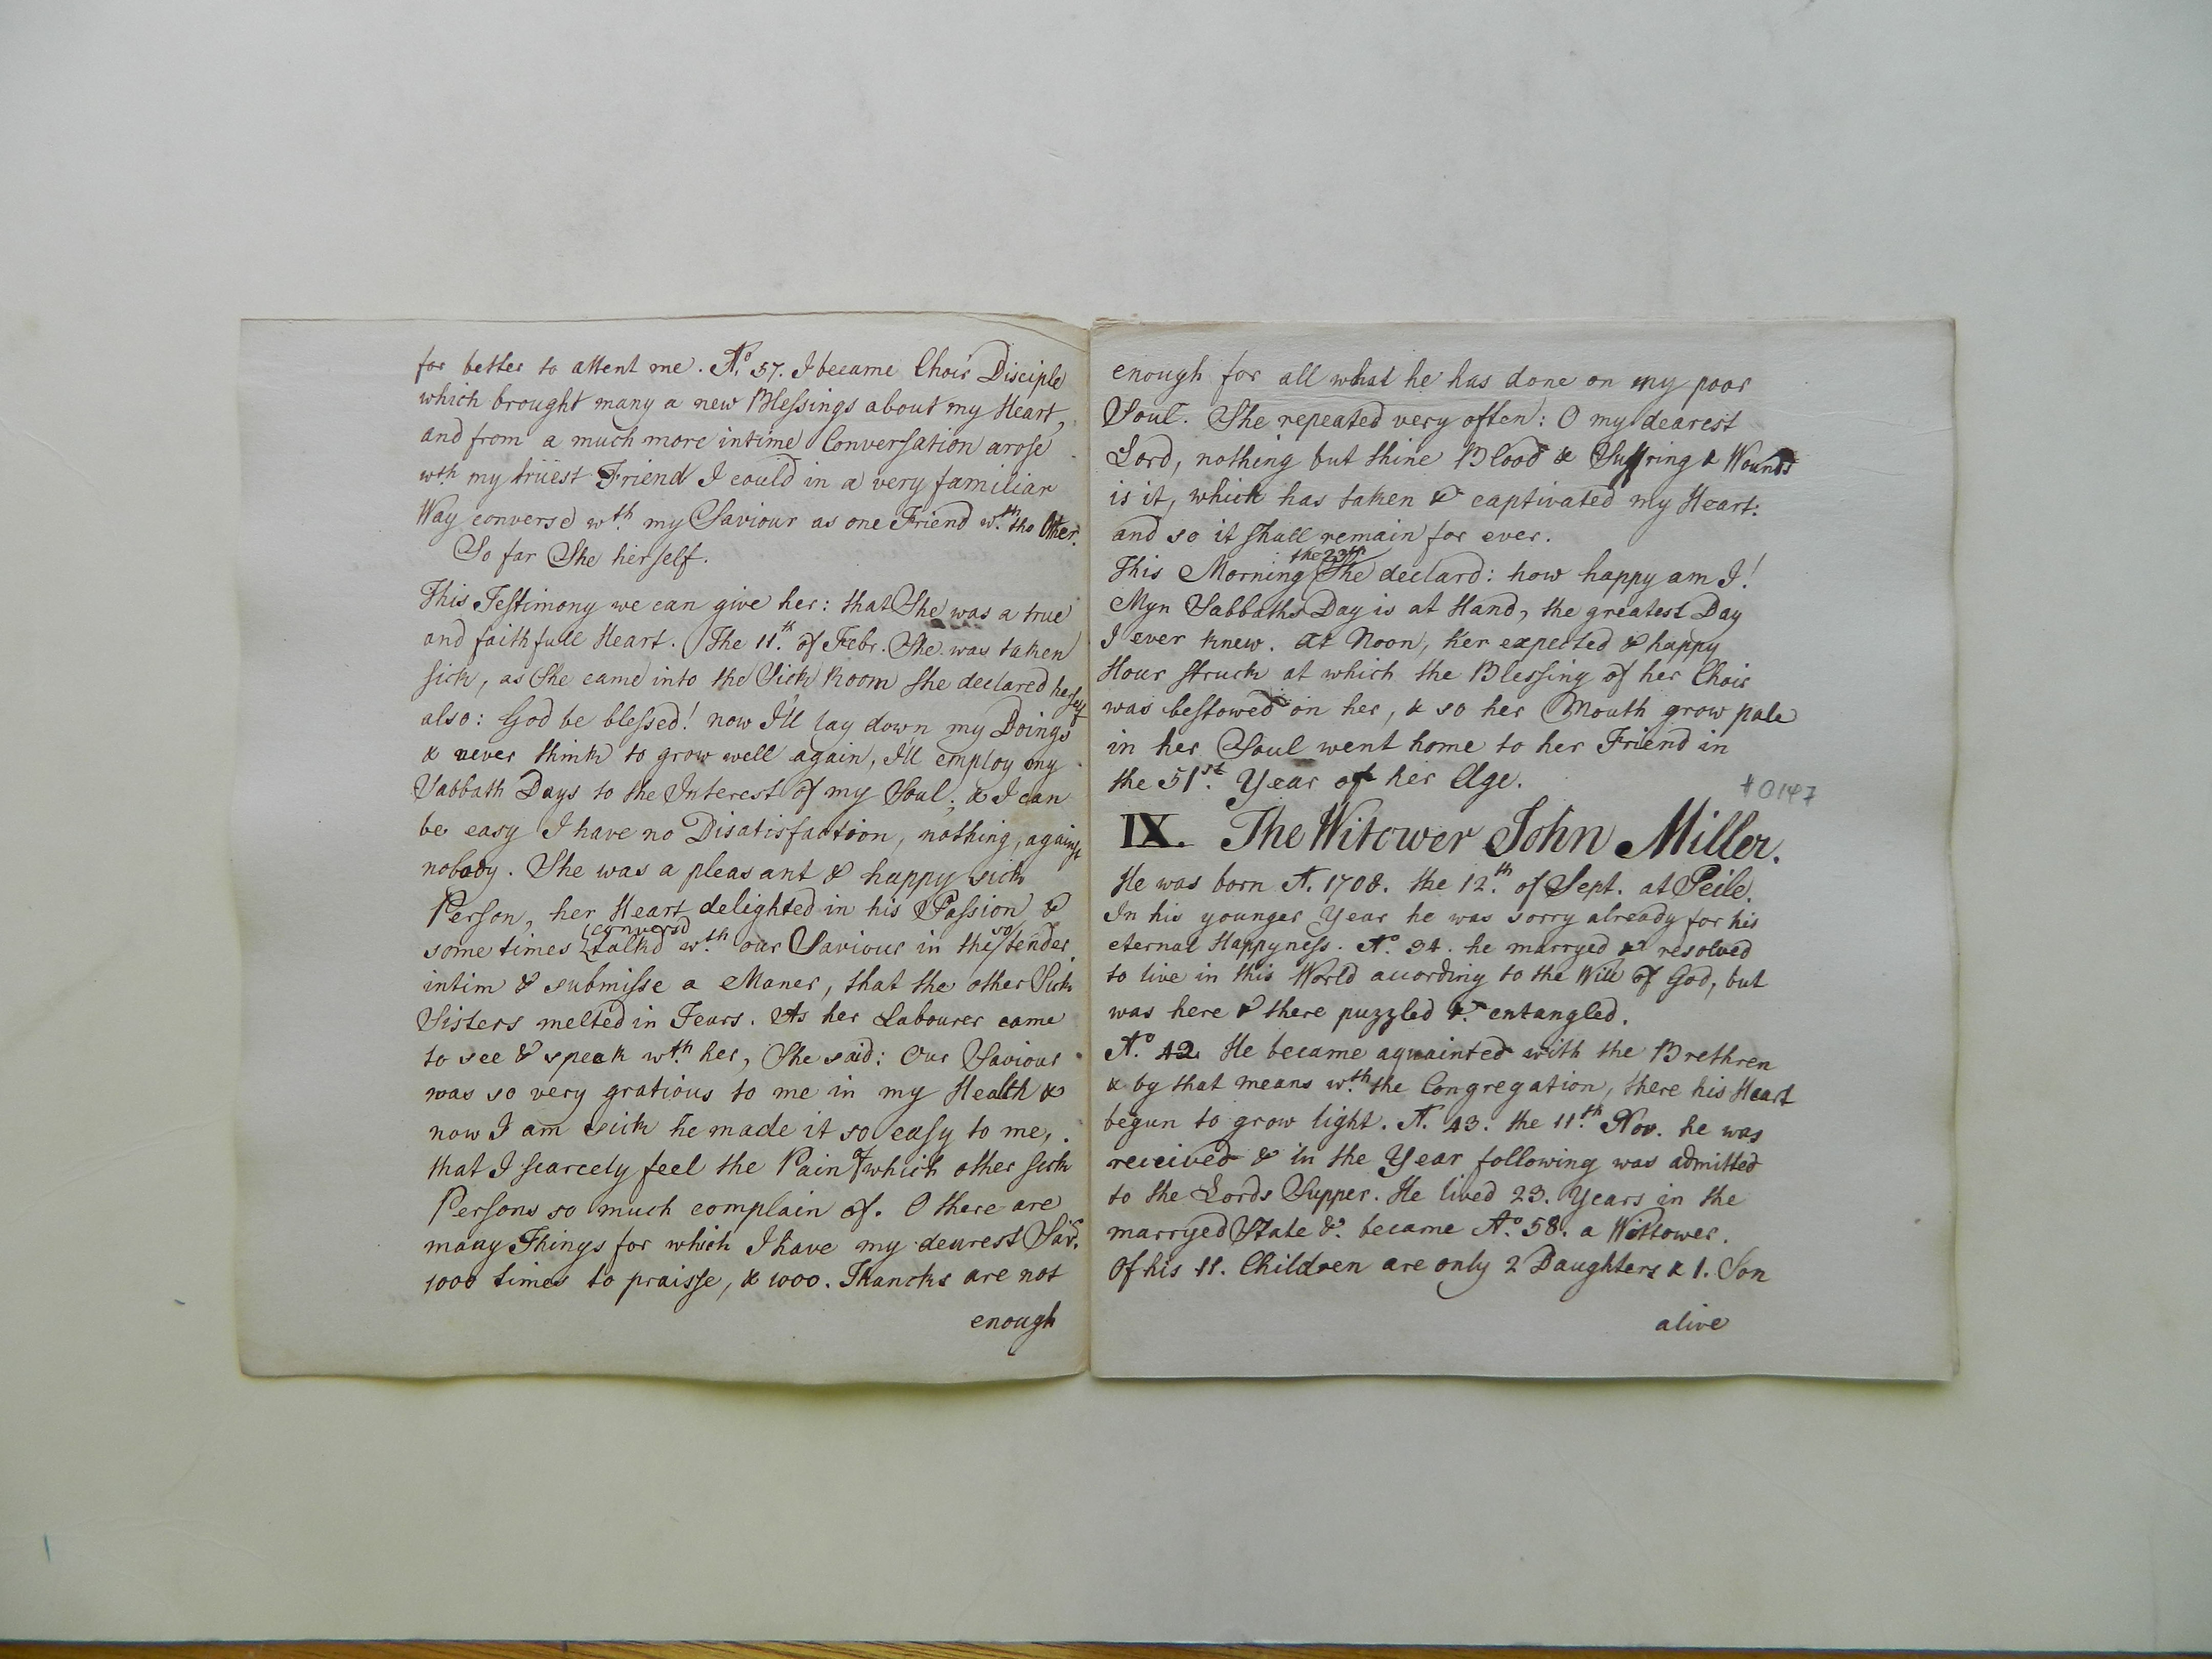 for better to attent me. Aº. 57. I became Choir Disciple
which brought many a new Blessings about my Heart,
and from a much more intime Conversation arose
wth my trüest Friend I could in a very familiar
Way converse wth. my Saviour as one Friend wth. the Other.
So far She herself.
This Testimony we can give her: that She was a true
and faithfull Heart. The 11th. of Febr. She was taken
sick, as She came into the Sick Room She declared herself
also: God be blessed! now I'll lay down my Doings
& never think to grow well again, I'll employ my
Sabbath Days to the Interest of my Soul; & I can
be easy I have no Disatisfaction, nothing, against
nobody. She was a pleasant & happy sick
Person, her Heart delighted in his Passion &
conversd so
some times talkd wth. our Saviour in the tender
intim & submisse a Maner, that the other Sick
Sisters melted in Tears. As her Labourer came
to see & speak wth. her, She said: Our Saviour
was so very gratious to me in my Health &
now I am sick he made it so easy to me,
that I scarcely feel the Pain of which other sick
Persons so much complain of. O there are
many Things for which I have my dearest Savr.
1000 times to praisse, & 1000. Thancks are not
enough
enough for all what he has done on my poor
Soul. She repeated very often: O my dearest
Lord, nothing but thine Blood & Suffring & Wounds
is it, which has taken & captivated my Heart:
and so it shall remain for ever.
the 23th
This Morning She declard: how happy am I!
Myn Sabbaths Day is at Hand, the greatest Day
I ever knew. At Noon, her expected & happy
Hour struck at which the Blessing of her Choir
was bestowed on her, & so her Mouth grow pale
in her Soul went home to her Friend in
the 51st. Year of her Age.
#0147
IX. The Witower John Miller.
He was born A. 1708. the 12th. of Sept. at Peile.
In his younger Year he was sorry already for his
eternal Happyness. Aº. 34. he marryed & resolved
to live in this World acording to the Will of God, but
was here & there puzzled &. entangled.
Aº. 42. He became aquainted with the Brethren
& by that means wth. the Congregation, there his Heart
begun to grow light. A. 43. the 11th. Nov. he was
reicived & in the Year following was admitted
to the Lords Supper. He lived 23. Years in the
marryed State &. became Aº. 58. a Wittower.
Of his 11. Children are only 2 Daughters & 1. Son
alive